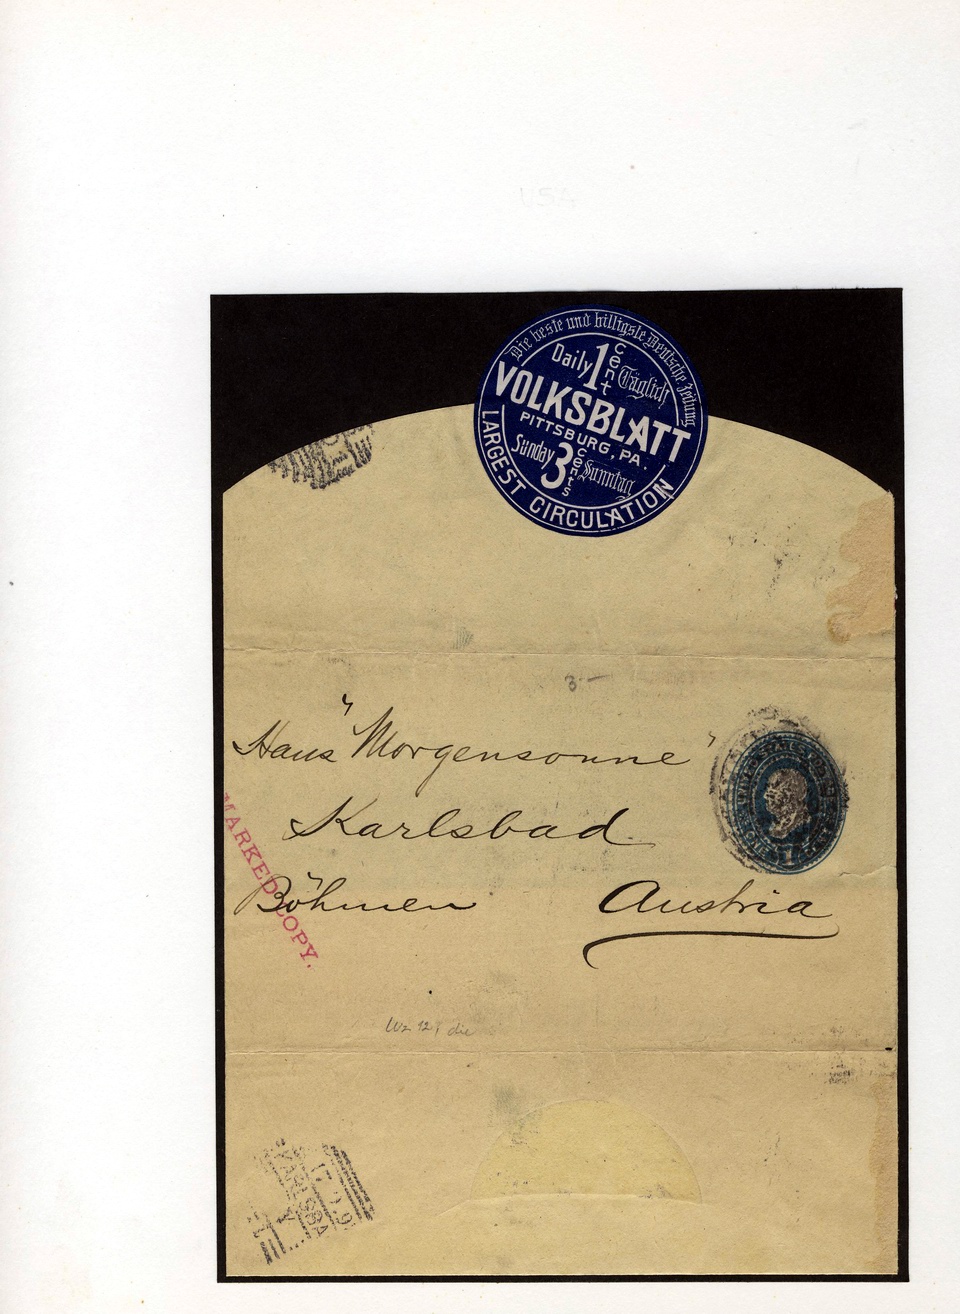 USA
Die beste und billigste Deutsche Zeitung
Daily 1 Cent Täglich
VOLKSBLATT
PITTSBURG, PA.
Sunday 3 Cents Sonntag
LARGEST CIRCULATION
3.—
Haus "Morgensonne"
Karlsbad
Böhmen Austria
MARKED COPY.
UNITED STATES
ONE
1
Wz 12, die
KARLSBA
17